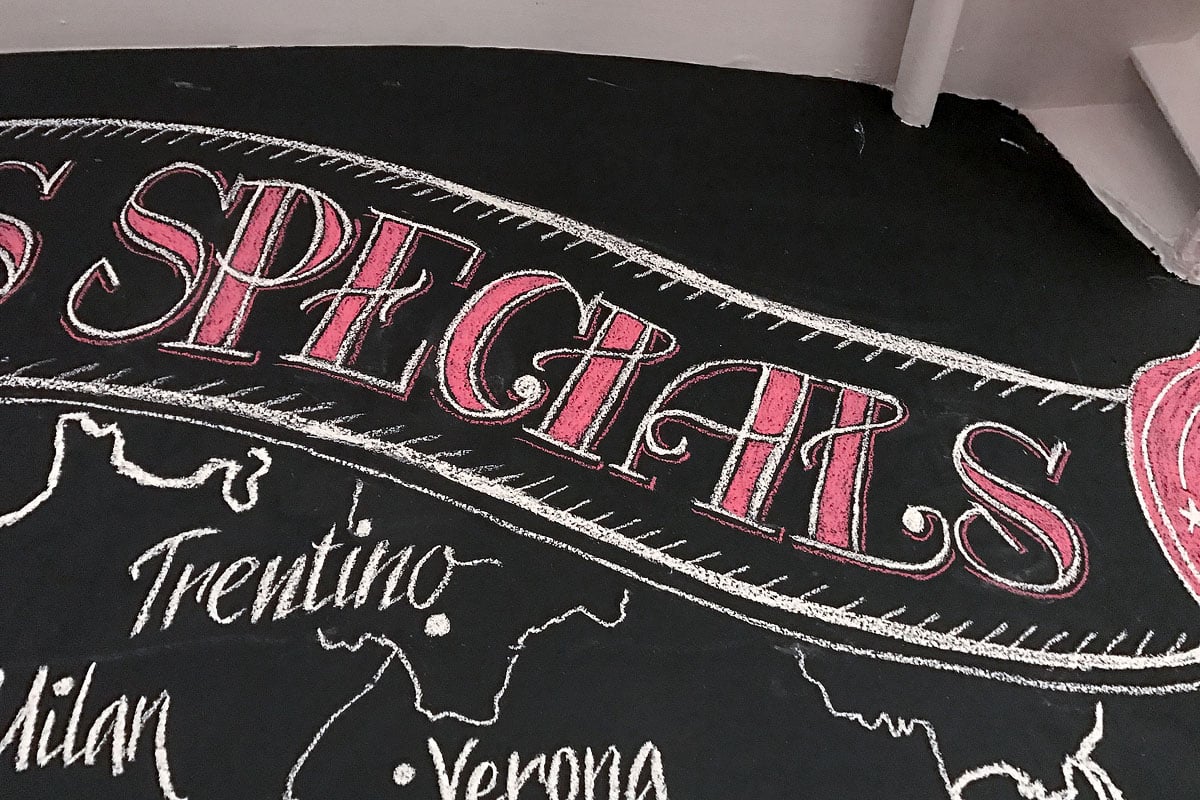 S SPECIALS
Trentino
Milan
Verona